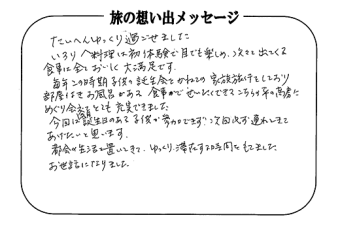 旅の想い出メッセージ
たいへんゆっくり過ごせました
いろり料理は初体験で目でも楽しめ、次々と出てくる
食事に全ておいしく大満足です。
毎年この時期子供の誕生会をかねての家族旅行をしており
部屋はお風呂があり食事が
できてこちらの
めぐり会え とても充実できました
今回は誕生日のある子供が参加できず、次回必ず連れてきて
あげたいと思います。
都会の生活を置いてきて、ゆっくり滞在する時間を
お世話になりました。